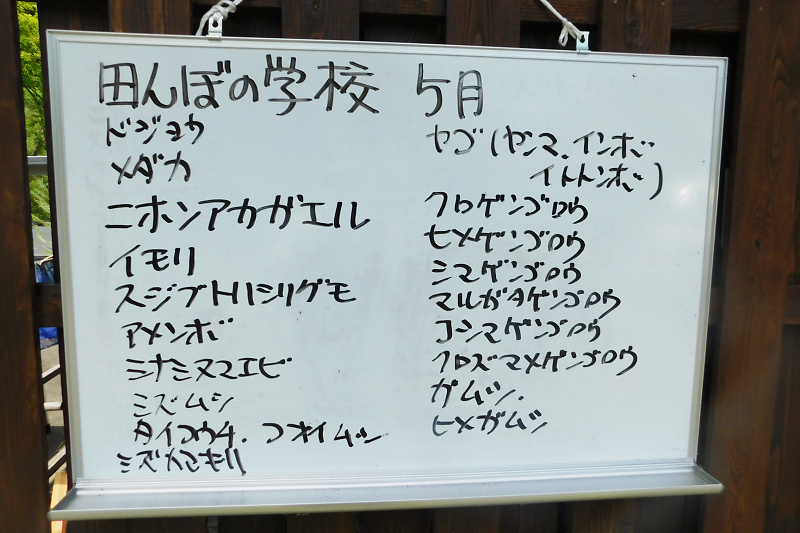 田んぼの学校 5月
ドジョウ
メダカ
ニホンアカガエル
イモリ
スジブトハシリグモ
アメンボ
ミナミヌマエビ
ミズムシ
タイコウチ、コオイムシ
ミズカマキリ
ヤゴ(ヤンマ、インボ
イトトンボ)
クロゲンゴロウ
ヒメゲンゴロウ
シマゲンゴロウ
マルガタゲンゴロウ
コシマゲンゴロウ
クロズマメゲンゴロウ
ガムシ、
ヒメガムシ